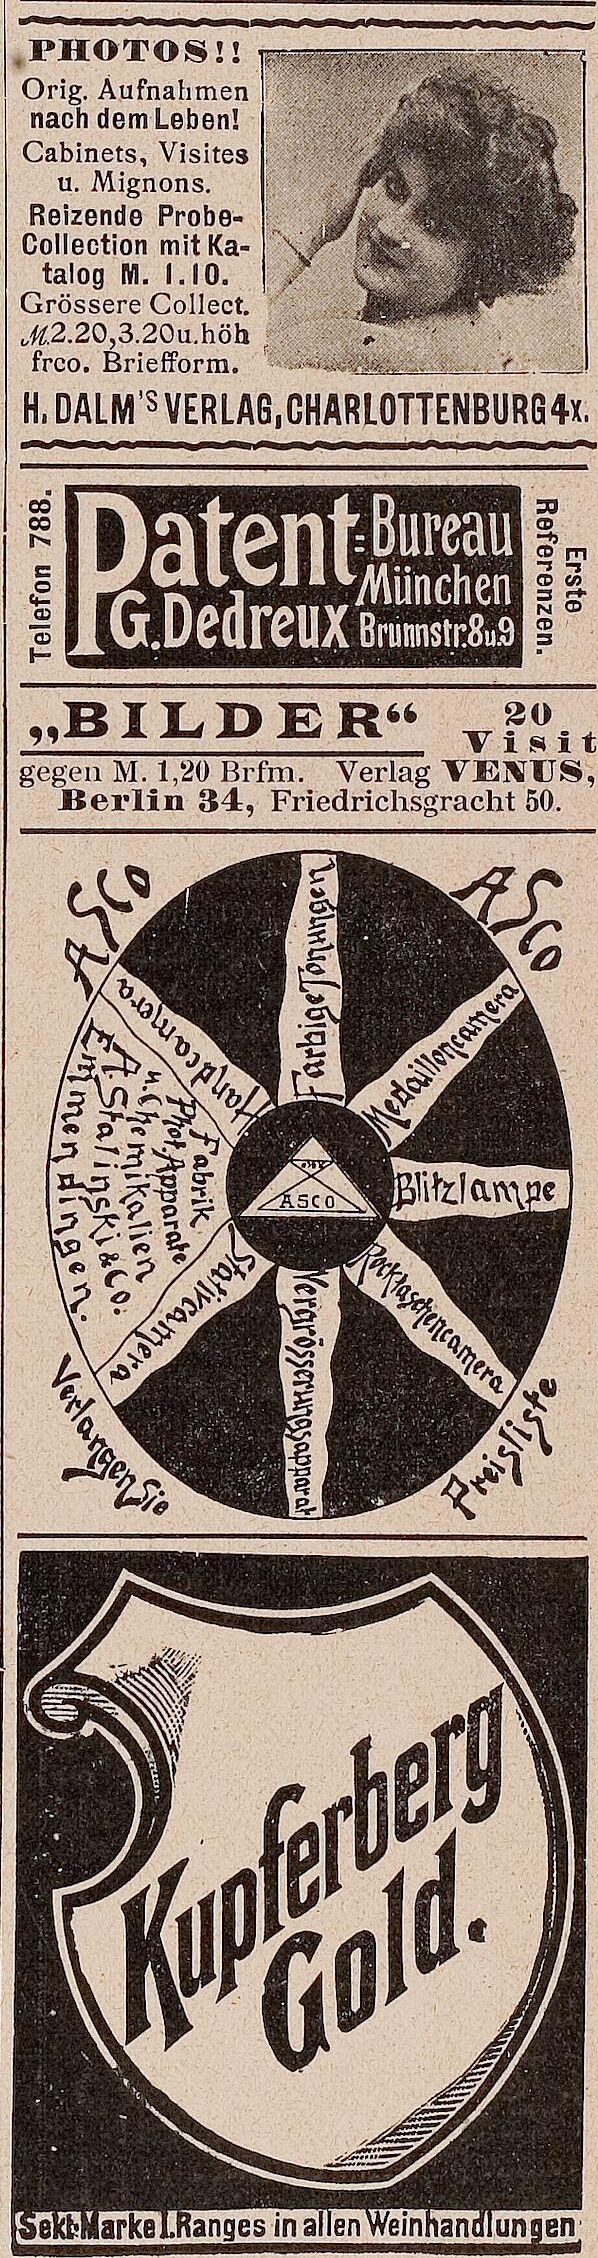 PHOTOS!!
Orig. Aufnahmen
nach dem Leben!
Cabinets, Visites
u. Mignons.
Reizende Probe-
Collection mit Ka-
talog M. 1.10.
Grössere Collect.
M. 2.20, 3.20 u. höh
frco. Briefform.
H. DALM'S VERLAG, CHARLOTTENBURG 4x.
Telefon 788.
Patent=Bureau
München
G. Dedreux Brunnstr. 8 u. 9
Erste
Referenzen.
„BILDER“ 20
Visit
gegen M. 1,20 Brfm. Verlag VENUS,
Berlin 34, Friedrichsgracht 50.
ASCO
ASCO
Farbige Tonungen
Medailloncamera
Blitzlampe
Rocktaschencamera
Vergrösserungsapparat
Stativcamera
Handcamera
Fabrik
Phot. Apparate
u. Chemikalien
A. Stalinski & Co.
Emmendingen.
ASCO
Verlangen Sie
Preisliste
Kupferberg
Gold.
Sekt-Marke I. Ranges in allen Weinhandlungen